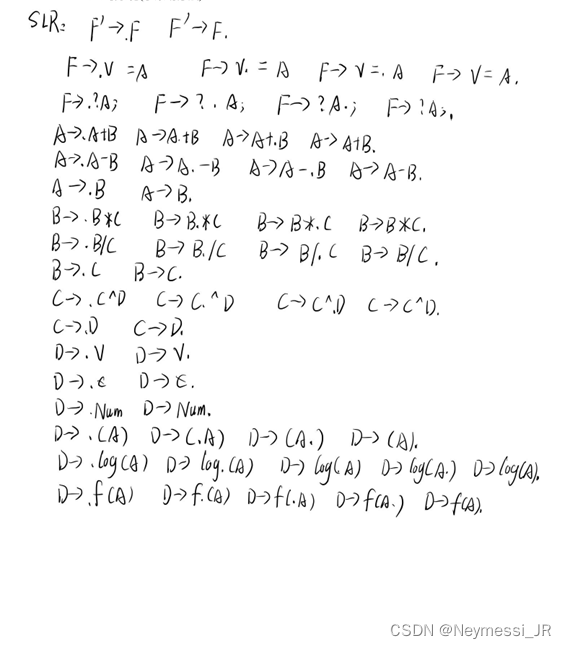 SLR: F'→.F F'→F.
F→.V =A F→V. = A F→V =. A F→V= A.
F→.?A; F→?.A; F→?A.; F→?A;.
A→.A+B A→A.+B A→A+.B A→A+B.
A→.A-B A→A.-B A→A-.B A→A-B.
A→.B A→B.
B→.B*C B→B.*C B→B*.C B→B*C.
B→.B/C B→B./C B→B/.C B→B/C.
B→.C B→C.
C→.C^D C→C.^D C→C^.D C→C^D.
C→.D C→D.
D→.V D→V.
D→.ϵ D→ϵ.
D→.Num D→Num.
D→.(A) D→(.A) D→(A.) D→(A).
D→.log(A) D→log.(A) D→log(A) D→log(A.) D→log(A).
D→.f(A) D→f.(A) D→f(.A) D→f(A.) D→f(A).
CSDN @Neymessi_JR